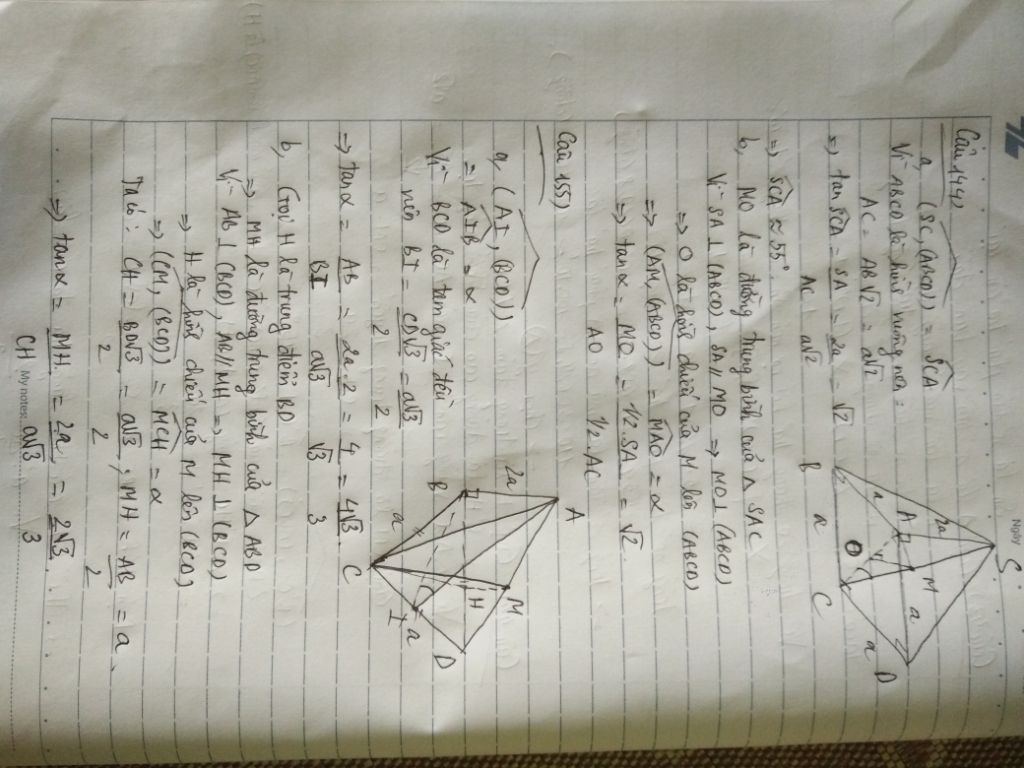 Ngày
Câu 144)
a, (SC, (ABCD)) = SCA
Vì ABCD là hình vuông nên:
AC = AB√2 = a√2
=> tan SCA = SA/AC = 2a/a√2 = √2
=> SCA ≈ 55°
b, MO là đường trung bình của △ SAC
Vì SA ⊥ (ABCD), SA // MO => MO ⊥ (ABCD)
=> O là hình chiếu của M lên (ABCD)
=> (AM, (ABCD)) = MAO = α
=> tan α = MO/AO = 1/2.SA/1/2.AC = √2.
S
2a
M
A
a
a
O
D
a
B
a
C
Câu 155)
a, (AI, (BCD))
= AIB = α
Vì BCD là tam giác đều
nên BI = CD√3/2 = a√3/2
=> tan α = AB/BI = 2a.2/a√3 = 4/√3 = 4√3/3
A
2a
M
B
H
D
a
a
I
C
b, Gọi H là trung điểm BD
=> MH là đường trung bình của △ ABD
Vì AB ⊥ (BCD), AB // MH => MH ⊥ (BCD)
=> H là hình chiếu của M lên (BCD)
=> (CM, (BCD)) = MCH = α
Ta có: CH = BD√3/2 = a√3/2, MH = AB/2 = a.
=> tan α = MH/CH = 2a/a√3 = 2√3/3
My notes